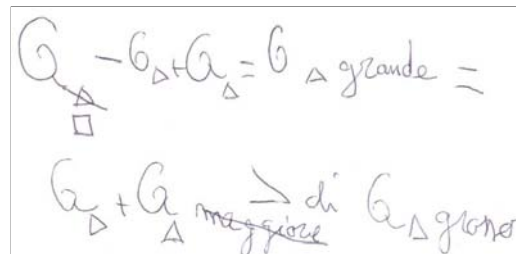 G□ - G△ + G△ = G△ grande =
G△ + G△ ~~maggiore~~ > di G△ grosso